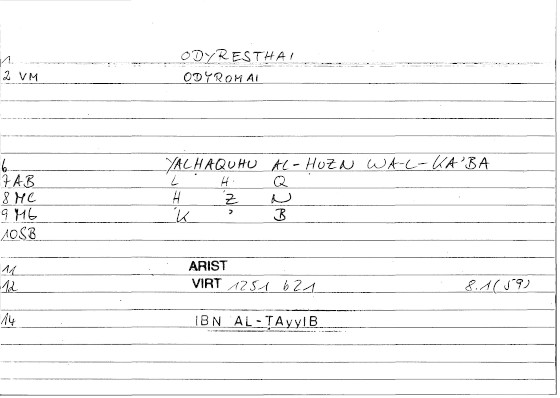 1 ODYRESTHAI
2 VM ODYROMAI
6 YALḤAQUHU AL-ḤUZN WA-L-KA'BA
7AB L Ḥ Q
8MC Ḥ Z N
9MG K ' B
10SB
11 ARIST
12 VIRT 1251 b21 8.1(59)
14 IBN AL-ṬAyyIB